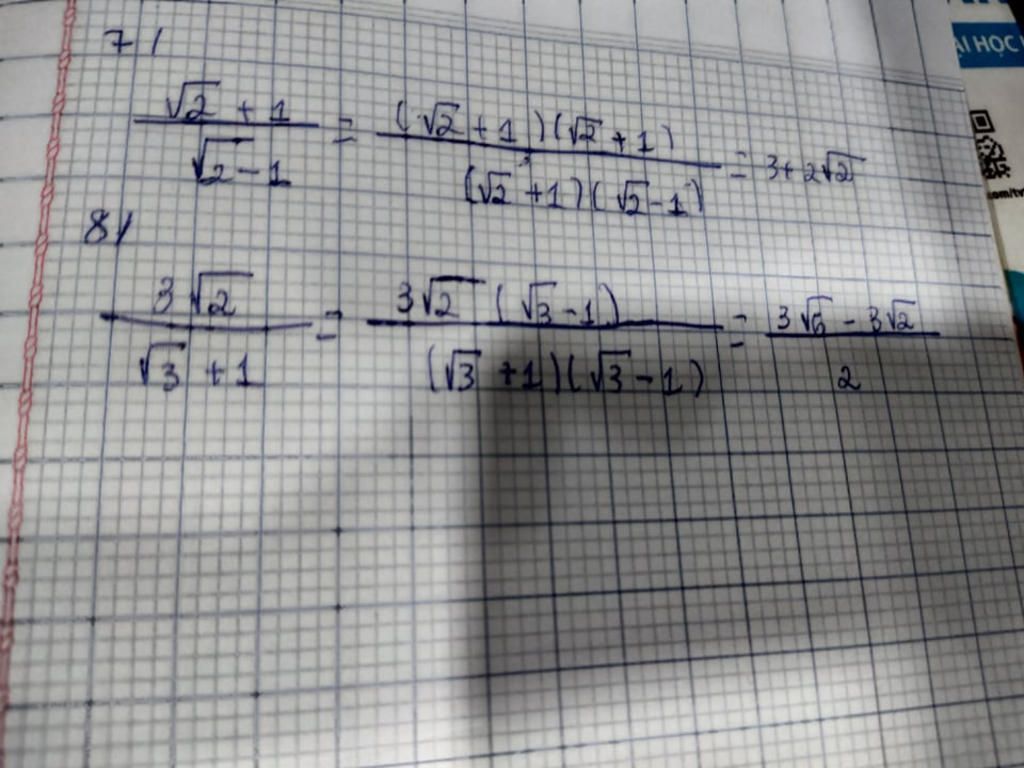 7/
√2 + 1 / √2 - 1 = (√2 + 1)(√2 + 1) / (√2 + 1)(√2 - 1) = 3 + 2√2
8/
3√2 / √3 + 1 = 3√2 (√3 - 1) / (√3 + 1)(√3 - 1) = 3√6 - 3√2 / 2
ẠI HỌC
.com/tv